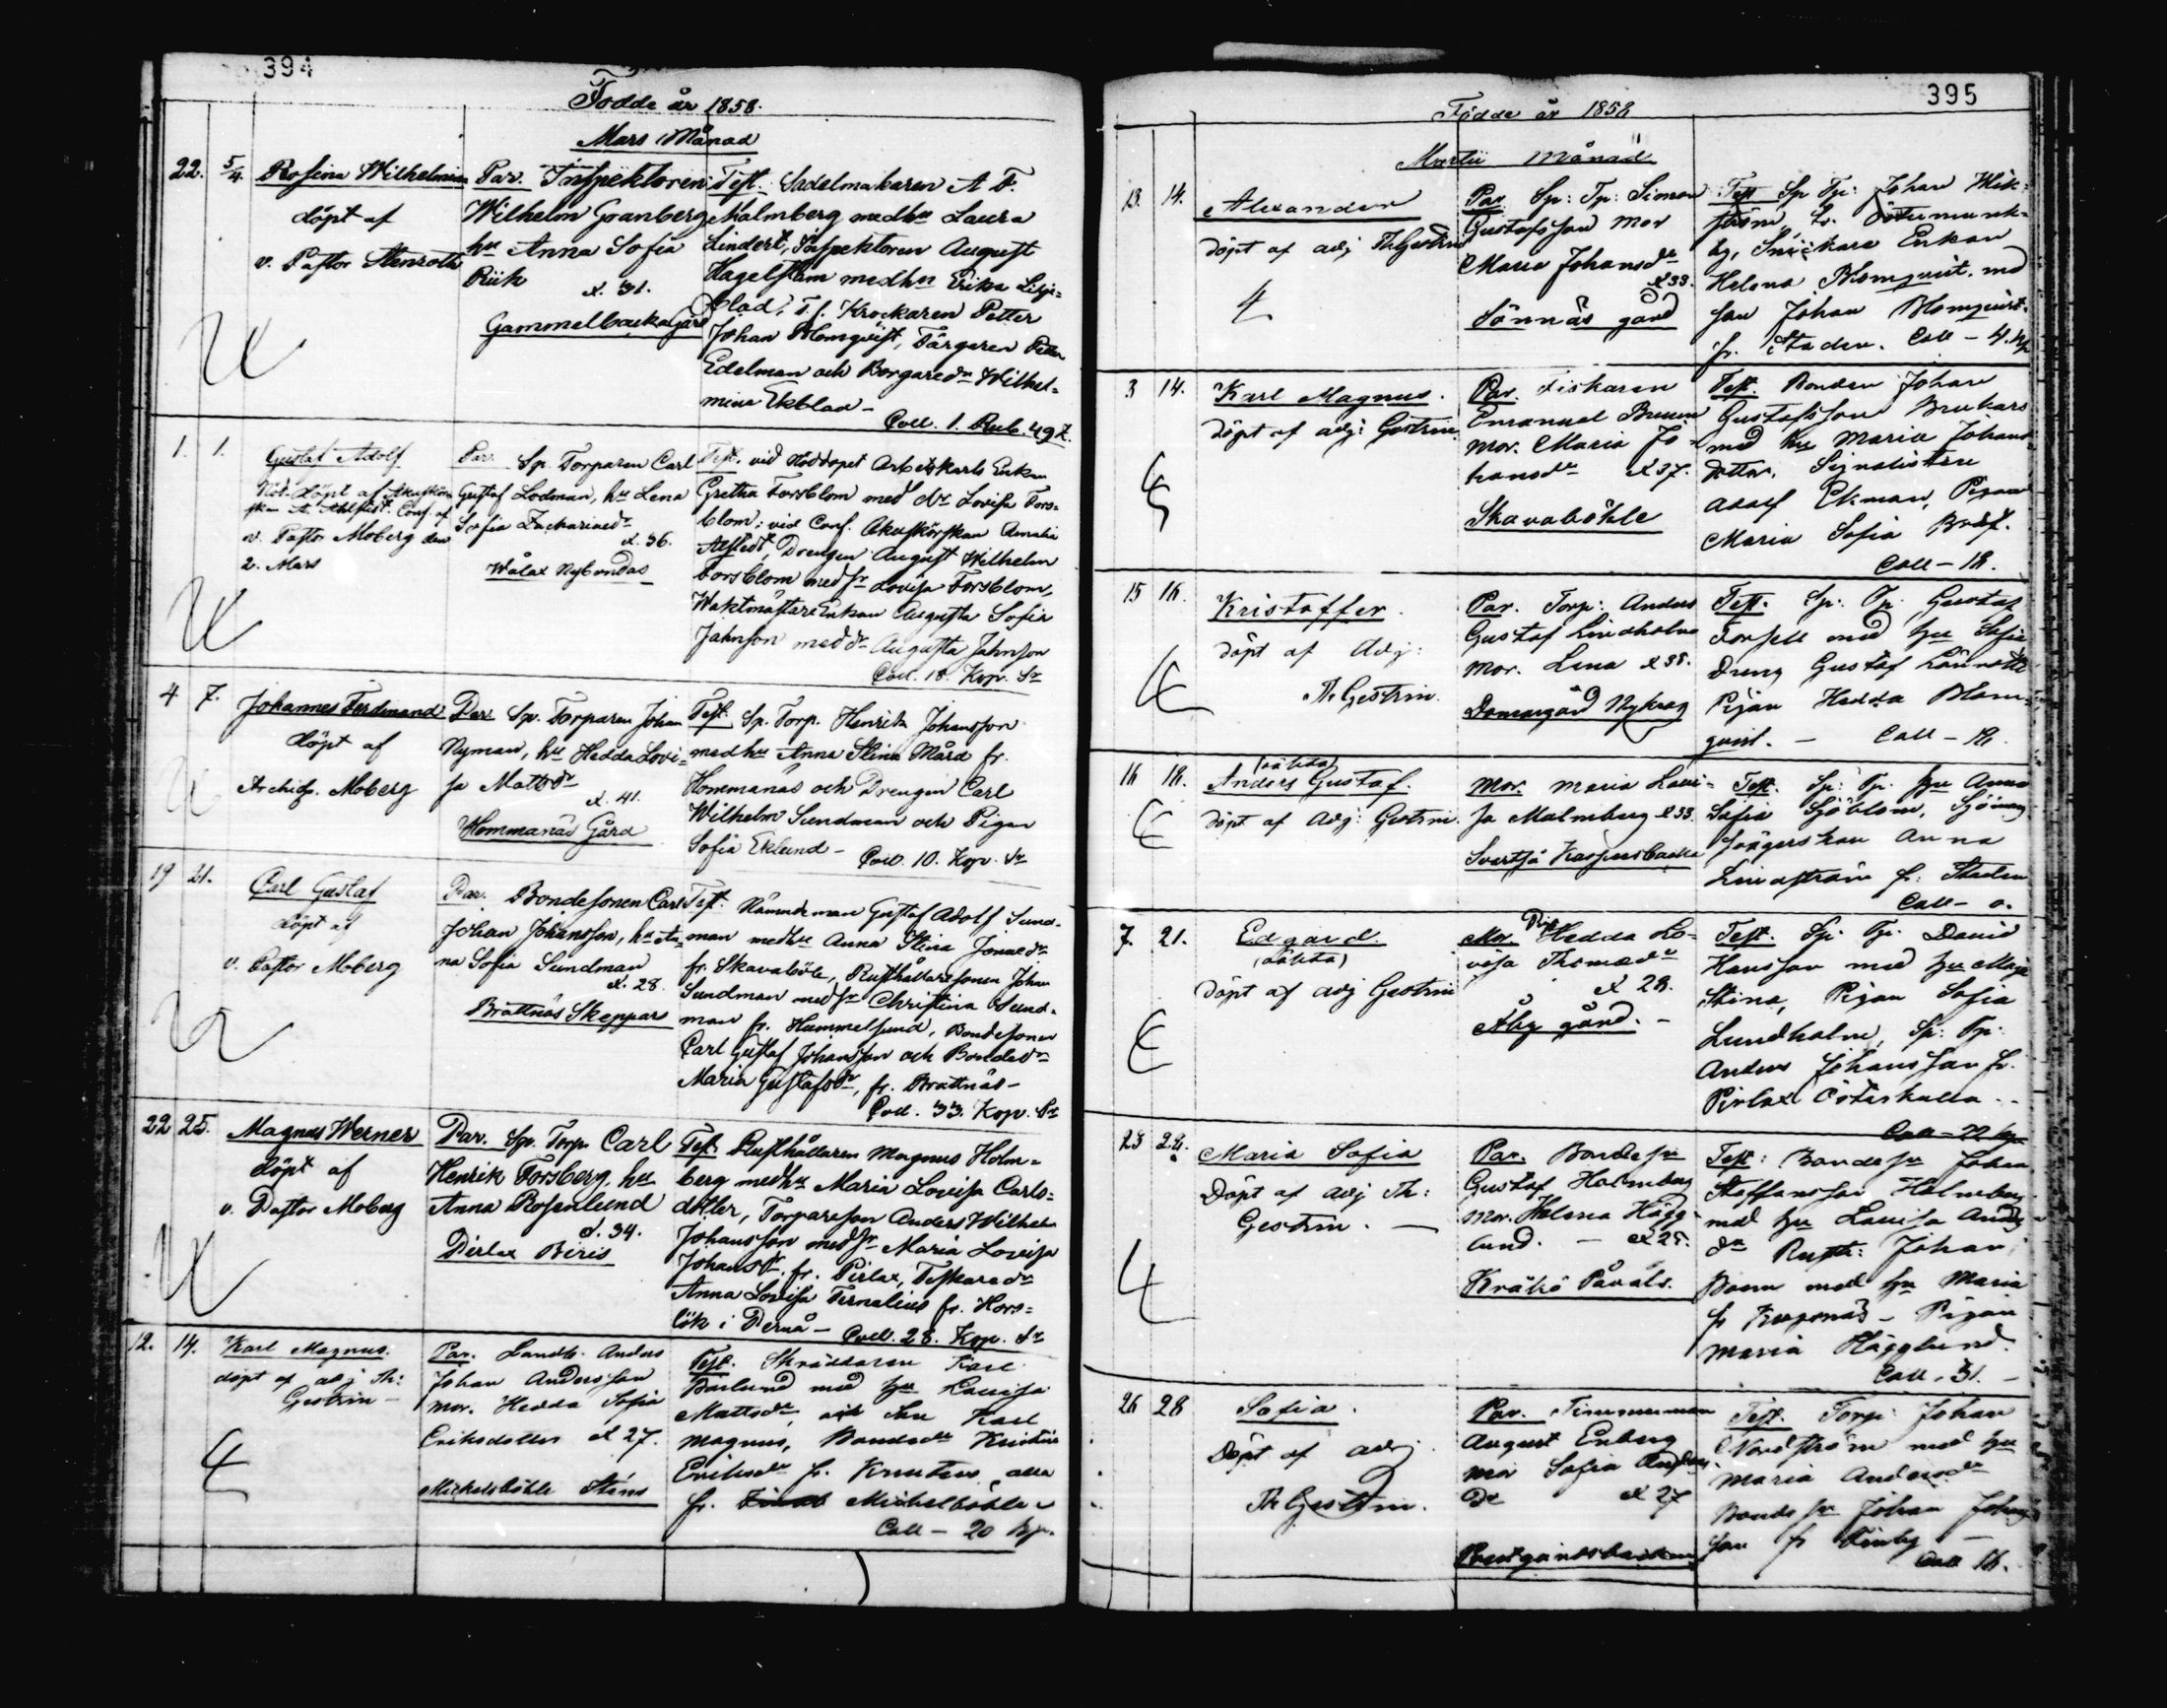 394
Födde år 1858.
Mars Månad
22. 5/4. Rosina Wilhelmina
döpt af
v. Pastor Stenroth
Par. Inspektoren
Wilhelm Granberg
hu Anna Sofia
Riik
æ. 31.
Gammelbacka Gård
Test. Sadelmakaren A. F.
Malmberg med hu Laura
Lindert, Inspektoren August
Hagelstam med hu Erika Lilje=
blad, T. f. Krockaren Petter
Johan Blomqvist, Färgaren Petter
Edelman och Borgaredr Wilhel=
mina Ekblad –
Coll. 1. Rub. 49 k.
1. 1. Gustaf Adolf
Nöd. döpt af
Conf. af
v. Pastor Moberg den
2. Mars
Par. Sp. Torparen Carl
Gustaf Lodman, hu Lena
Sofia Zachariædr
æ. 36.
Wålax Nybondas
Test. vid Nöddopet Arbetskarls Enkan
Gretha Forsblom med dr Lovisa Fors=
blom; vid Conf. Amalia
Drengen August Wilhelm
Forsblom med sr Lovisa Forsblom,
Waktmästare Enkan Augusta Sofia
Jahnson med dr Augusta Jahnson
Coll. 18. Kop. Sr
4 7. Johannes Ferdinand
döpt af
Archid. Moberg
Par. Sp. Torparen Johan
Nyman, hu Hedda Lovi=
sa Mattsdr
æ. 41.
Hommanäs Gård
Test. Sp. Torp. Henrik Johansson
med hu Anna Stina Mård fr.
Hommanäs och Drengen Carl
Wilhelm Sundman och Pigan
Sofia Eklund –
Coll. 10. Kop. Sr
19 21. Carl Gustaf
döpt af
v. Pastor Moberg
Par. Bondesonen Carl
Johan Johansson, hu An=
na Sofia Sundman
æ. 28.
Brattnäs Skeppars
Test. Nämndeman Gustaf Adolf Sund=
man med hu Anna Stina Jonaedr
fr. Skavaböle, Rusthållaresonen Johan
Sundman med sr Christina Sund=
man fr. Hummelsund, Bondesonen
Carl Gustaf Johansson och Bondedr
Maria Gustafsdr, fr. Brattnäs –
Coll. 33. Kop. Sr
22 25. Magnus Werner
döpt af
v. Pastor Moberg
Par. Sp. Torp. Carl
Henrik Forsberg, hu
Anna Rosenlund
æ. 34.
Pirlax Biris
Test. Rusthållaren Magnus Holm=
berg med hu Maria Lovisa Carls=
dotter, Torpareson Anders Wilhelm
Johansson med sr Maria Lovisa
Johansdr, fr. Pirlax, Fiskaredr
Anna Lovisa Ternelius fr. Hors=
lök i Pernå –
Coll. 28. Kop. Sr
12. 14. Karl Magnus.
döpt af adj Th:
Gestrin –
Par. Landb. Anders
Johan Andersson
mor. Hedda Sofia
Eriksdotter æ 27.
Mickelsböhle Stens
Test. Skräddaren Karl
Barlund med hu Lovisa
Mattsdr, och Son Karl
Magnus, Bondedr Kristina
Eriksdr fr. Knutus, alla
fr. Mickelböhle
Coll – 20 kp.
395
Födde år 1858
Martii Månad
13. 14. Alexander
döpt af adj Th Gestrin
Par. Sp: Tp: Simon
Gustafsson mor
Maria Johansdr
æ 33.
Sönnäs gård
Test Sp Tp: Johan Wik=
ström, fr. Östermunk=
by, Snickare Enkan
Helena Blomqvist. med
son Johan Blomqvist.
fr. Staden. Coll – 4. kp
3 14. Karl Magnus.
döpt af adj: Gestrin.
Par. Fiskaren
Emanuel
mor. Maria Jo=
hansdr æ 37.
Skavaböhle
Test. Bonden Johan
Gustafsson Brukars
med hu Maria Johans=
dotter, Signalisten
Adolf Ekman, Pigan
Maria Sofia
Coll – 18.
15 16. Kristoffer.
döpt af Adj:
Th Gestrin.
Par. Torp: Anders
Gustaf Lindholm
mor. Lena æ 38.
Domargård Nykrog
Test. Sp: Tp: Gustaf
Forsell med hu Sofia
Dreng Gustaf
Pigan Hedda Blom=
qvist. – Coll – 12.
16 18. Anders Gustaf.
(oäkta)
döpt af Adj: Gestrin.
Mor. Maria Lovi=
sa Malmberg æ 33.
Svartså Kaspersbacka
Test. Sp: Tp: hu Anna
Sofia Sjöblom,
Anna
Lindström fr. Staden
Coll – 0.
7. 21. Edgard.
(oäkta)
döpt af adj Gestrin
Mor. Pig. Hedda Lo=
visa Thomædr
æ 28.
Åby gård. –
Test. Sp: Tp: David
Hansson med hu Maja
Stina, Pigan Sofia
Lundholm, Sp: Tp:
Anders Johansson fr.
Pirlax
Coll – 22 kp
23 28. Maria Sofia
Döpt af adj Th:
Gestrin. –
Par. Bondeson
Gustaf Holmberg
mor. Helena Hägg=
lund. – æ 25.
Kråkö Påvals.
Test: Bondeson Johan
Staffansson Holmberg
med hu Lovisa Anders
dr Rusth: Johan
med hu Maria
fr – Pigan
Maria Hägglund.
Coll, 31. –
26 28 Sofia.
Döpt af adj.
Th Gestrin.
Par. Timmerman
August Enberg
mor Sofia Anders
dr æ 27
Prestgårdsbacken
Test. Torp: Johan
Nordström med hu
Maria Andersdr
Bondeson Johan Johans=
son fr –
Coll 16.